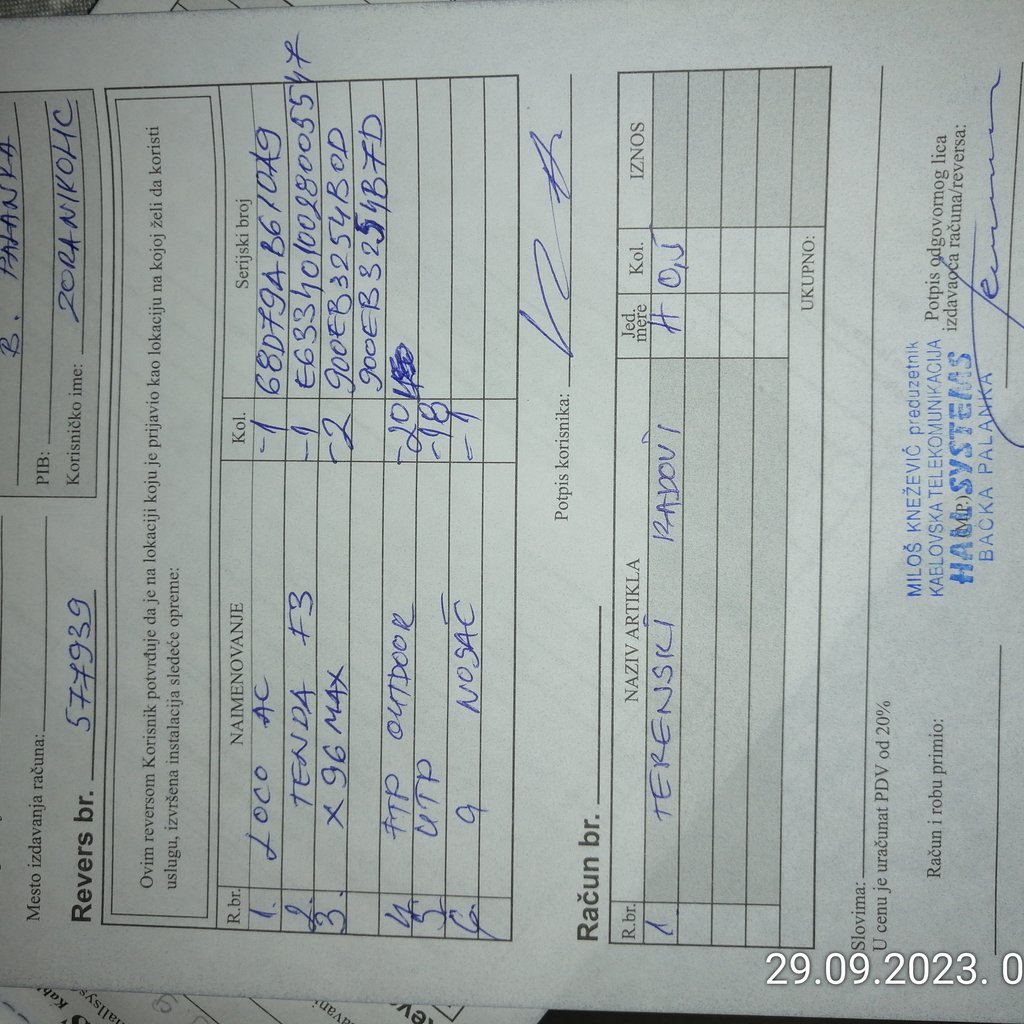 B. PALANKA
PIB:
Korisničko ime: ZORANIKOLIC
Mesto izdavanja računa:
Revers br. 577939
Ovim reversom Korisnik potvrđuje da je na lokaciji koju je prijavio kao lokaciju na kojoj želi da koristi
uslugu, izvršena instalacija sledeće opreme:
R.br. NAIMENOVANJE Kol. Serijski broj
1. LOCO AC -1 68D79AB610A9
2. TENDA F3 -1 E6334010028005547
3. X96 MAX -2 900EB3254B0D
900EB3254B7D
4. FTP OUTDOOR -20
5. UTP -18
6. G NOSAČ -1
Potpis korisnika:
Račun br.
R.br. NAZIV ARTIKLA Jed. mere Kol. IZNOS
1. TERENSKI RADOVI H 0,5
UKUPNO:
Slovima:
U cenu je uračunat PDV od 20%
Račun i robu primio:
(M.P.)
Potpis odgovornog lica
izdavaoca računa/reversa:
MILOŠ KNEŽEVIĆ preduzetnik
KABLOVSKA TELEKOMUNIKACIJA
HALL SYSTEMS
BAČKA PALANKA
29.09.2023. 0